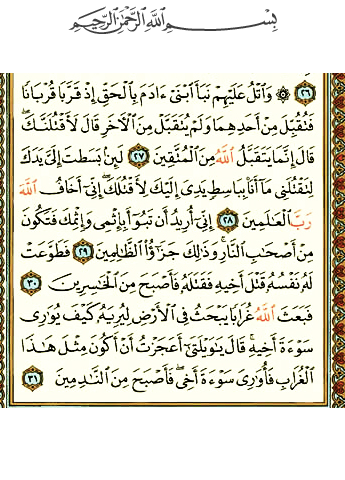 بِسْمِ اللَّهِ الرَّحْمَٰنِ الرَّحِيمِ
٢٦ ۞ وَٱتْلُ عَلَيْهِمْ نَبَأَ ٱبْنَىْ ءَادَمَ بِٱلْحَقِّ إِذْ قَرَّبَا قُرْبَانًا
فَتُقُبِّلَ مِنْ أَحَدِهِمَا وَلَمْ يُتَقَبَّلْ مِنَ ٱلْأَخَرِ قَالَ لَأَقْتُلَنَّكَ ۖ
قَالَ إِنَّمَا يَتَقَبَّلُ ٱللَّهُ مِنَ ٱلْمُتَّقِينَ ٢٧ لَئِنۢ بَسَطتَ إِلَىَّ يَدَكَ
لِتَقْتُلَنِى مَآ أَنَا۠ بِبَاسِطٍ يَدِىَ إِلَيْكَ لِأَقْتُلَكَ ۖ إِنِّىٓ أَخَافُ ٱللَّهَ
رَبَّ ٱلْعَٰلَمِينَ ٢٨ إِنِّىٓ أُرِيدُ أَن تَبُوٓأَ بِإِثْمِى وَإِثْمِكَ فَتَكُونَ
مِنْ أَصْحَٰبِ ٱلنَّارِ ۚ وَذَٰلِكَ جَزَٰٓؤُا۟ ٱلظَّٰلِمِينَ ٢٩ فَطَوَّعَتْ
لَهُۥ نَفْسُهُۥ قَتْلَ أَخِيهِ فَقَتَلَهُۥ فَأَصْبَحَ مِنَ ٱلْخَٰسِرِينَ ٣٠
فَبَعَثَ ٱللَّهُ غُرَابًا يَبْحَثُ فِى ٱلْأَرْضِ لِيُرِيَهُۥ كَيْفَ يُوَٰرِى
سَوْءَةَ أَخِيهِ ۚ قَالَ يَٰوَيْلَتَىٰٓ أَعَجَزْتُ أَنْ أَكُونَ مِثْلَ هَٰذَا
ٱلْغُرَابِ فَأُوَٰرِىَ سَوْءَةَ أَخِى ۖ فَأَصْبَحَ مِنَ ٱلنَّٰدِمِينَ ٣١